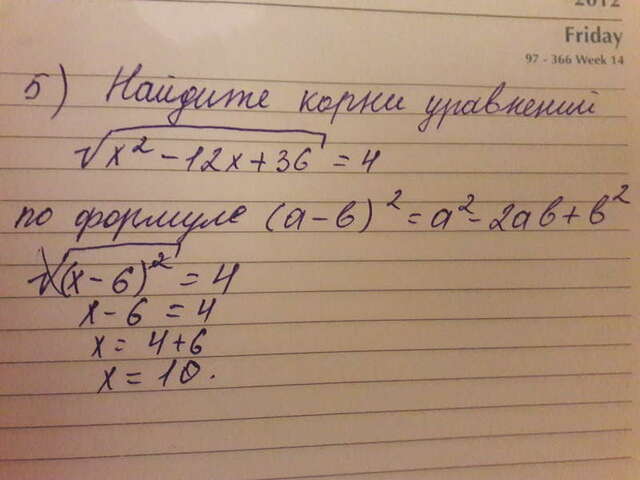 2012
Friday
97 - 366 Week 14
5) Найдите корни уравнений
√x² - 12x + 36 = 4
по формуле (a - b)² = a² - 2ab + b²
√(x - 6)² = 4
x - 6 = 4
x = 4 + 6
x = 10.